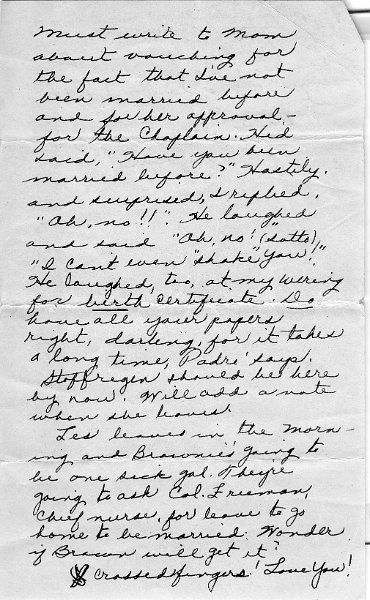 Must write to Mom
about vouching for
the fact that I've not
been married before
and for her approval –
for the Chaplain. He'd
said, "Have you been
married before?" Hastily,
and surprised, I replied,
"Oh, no!!" He laughed
and said "Oh, no! (sotto),"
"I can't even "shake" you".
He laughed, too, at my wiring
for birth certificate. Do
have all your papers
right, darling, for it takes
a long time, Padre' says.
Stoffregen should be here
by now. Will add a note
when she leaves.
Les leaves in the morn-
ing and Brownie's going to
be one sick gal. They're
going to ask Col. Freeman,
Chief nurse, for leave to go
home to be married. Wonder
if Brown will get it?
crossed fingers! Love You!